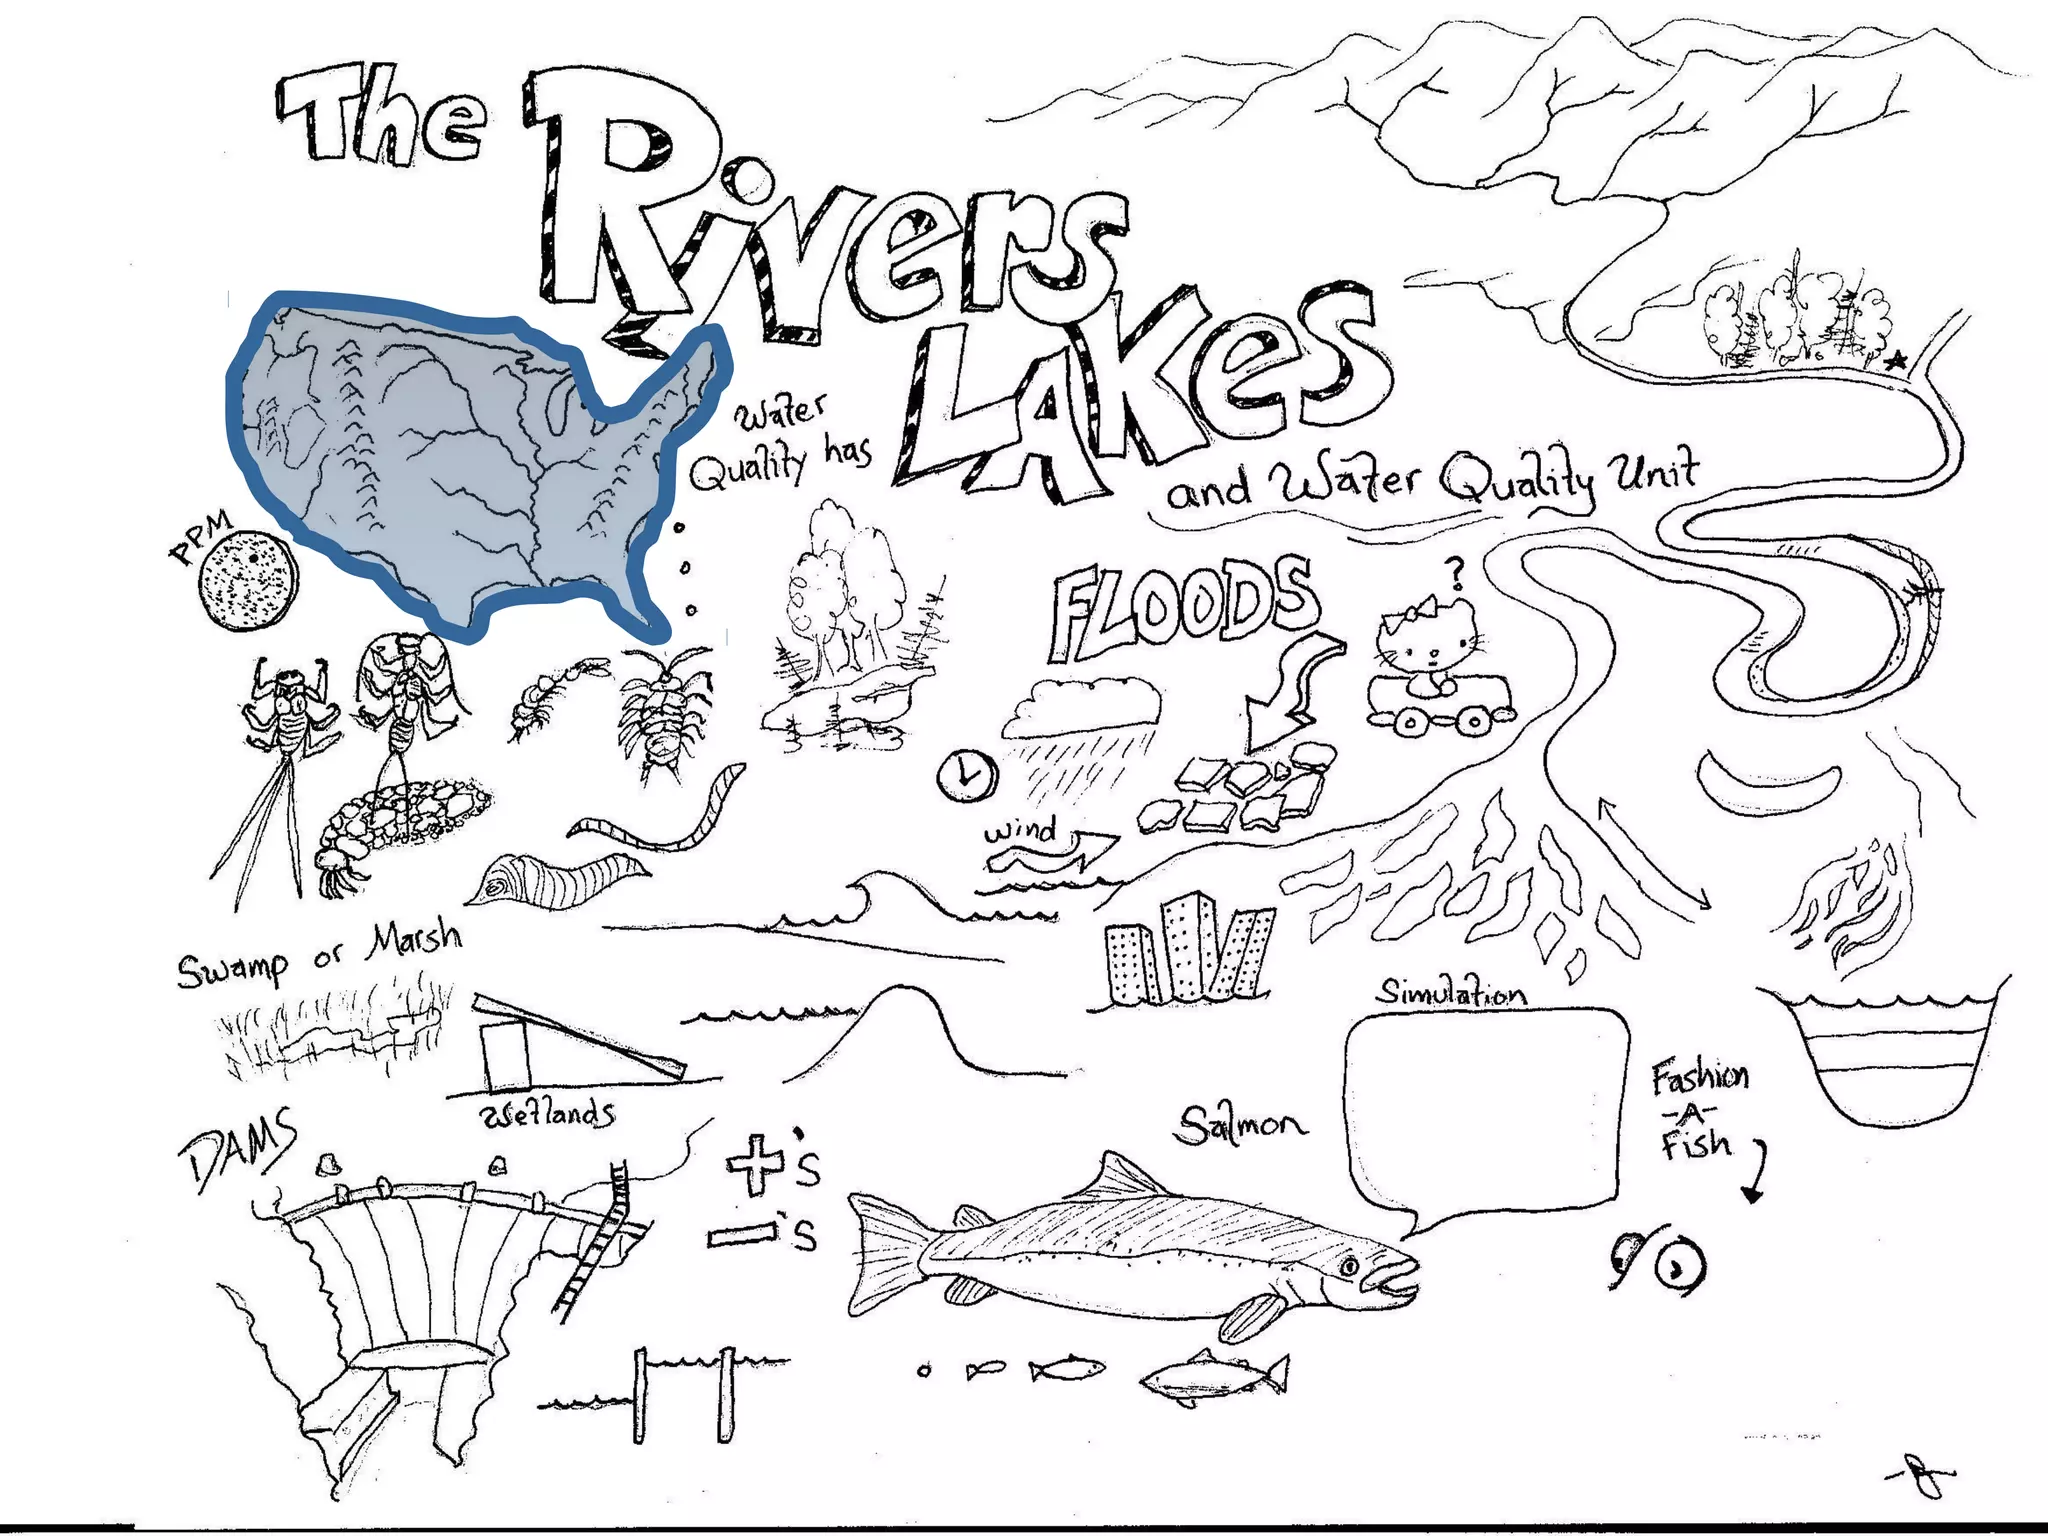 The Rivers
LAKes
and Water Quality Unit
Water
Quality has
PPM
FLOODS
?
wind
Swamp or Marsh
Wetlands
Simulation
Fashion
-A-
Fish
Salmon
DAMS
+'s
-'s